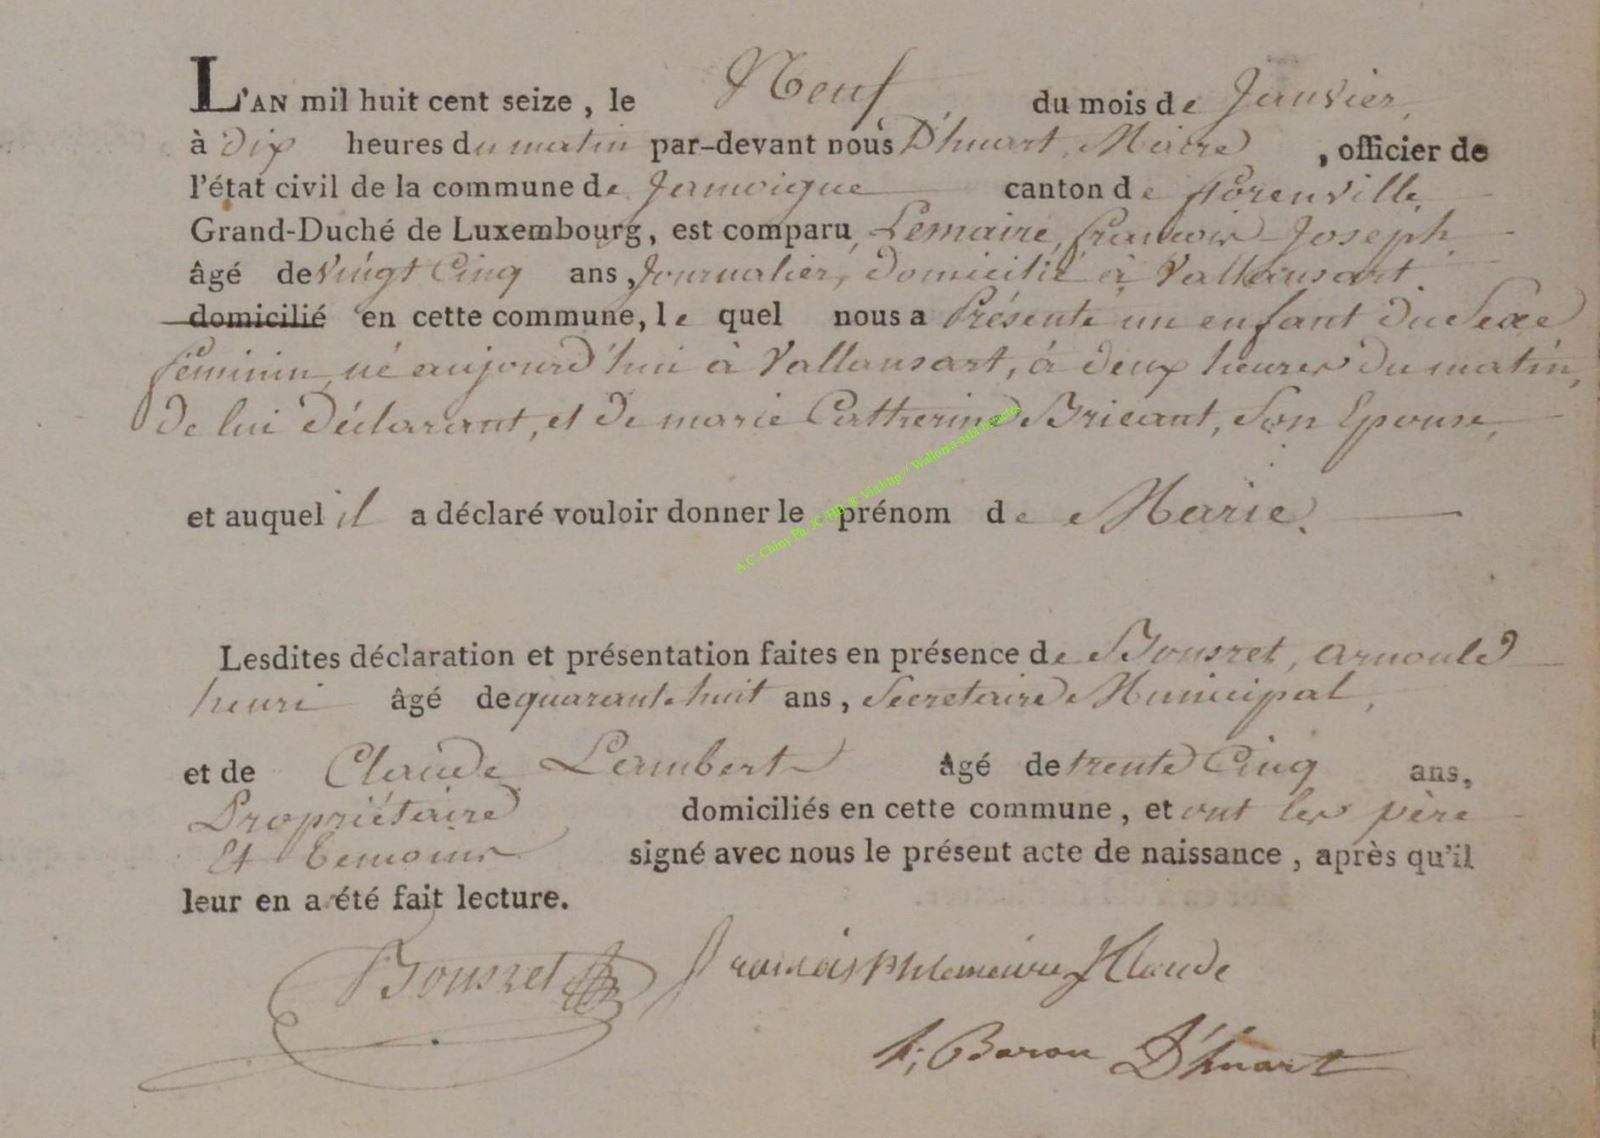 L'AN mil huit cent seize, le Neuf du mois de Janvier,
à dix heures du matin par-devant nous D'huart, Maire, officier de
l'état civil de la commune de Jamoigne canton de florenville,
Grand-Duché de Luxembourg, est comparu, Lemaire, françois Joseph
âgé de vingt Cinq ans, Journalier, domicilié à Vallansart.
domicilié en cette commune, le quel nous a Présenté un enfant du Sexe
féminin, né aujourd'hui à Vallansart, à deux heures du matin,
de lui déclarant, et de marie Catherine Bricant, Son Epouse,
et auquel il a déclaré vouloir donner le prénom de Marie.
A.C. Chiny Ph. JC
Lesdites déclaration et présentation faites en présence de Bousret, arnould
henri âgé de quarante huit ans, Secretaire Municipal,
et de Claude Lambert âgé de trente Cinq ans,
Propriétaire domiciliés en cette commune, et ont les père
Et temoins signé avec nous le présent acte de naissance, après qu'il
leur en a été fait lecture.
Bousret JClaude
Baron D'huart